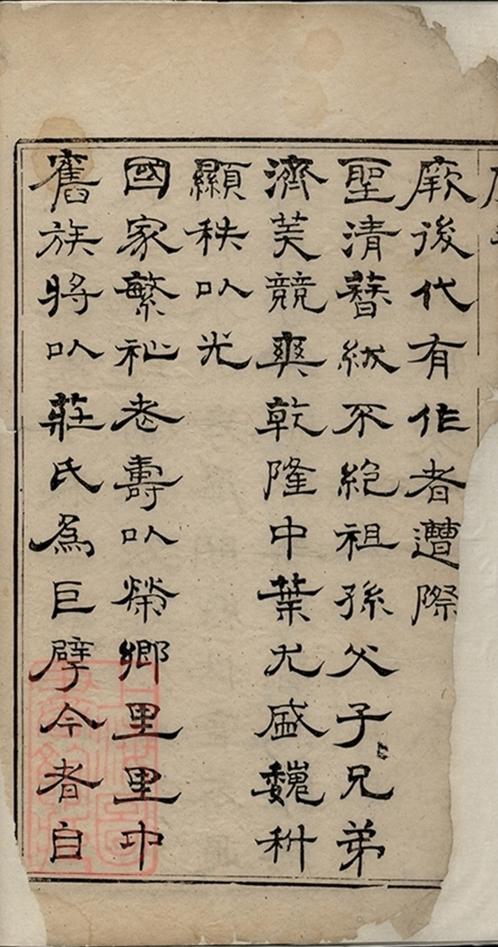 厥後代有作者遭際
聖清簪紱不絕祖孫父子兄弟
濟美競爽乾隆中葉尤盛巍科
顯秩㕥光
國家繁祉老壽㕥榮鄉里里中
舊族將㕥莊氏為巨擘今者自